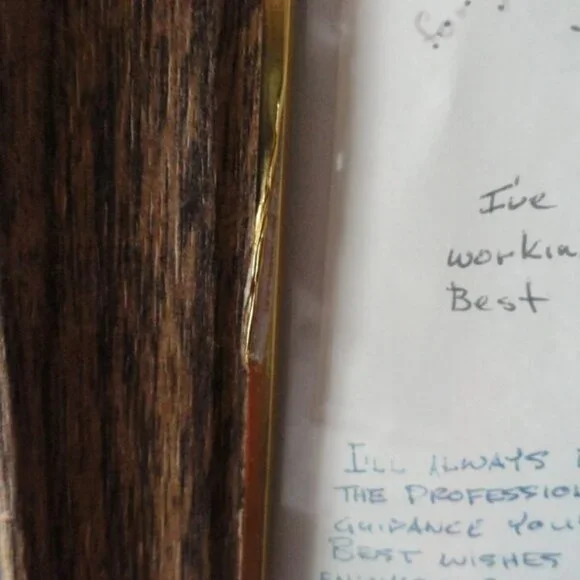 I've
workin
Best
I'LL ALWAYS
THE PROFESSION
GUIDANCE YOU'
BEST WISHES